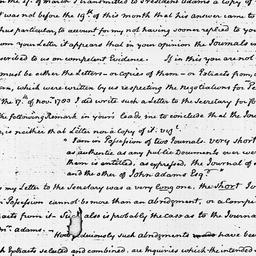 the 17th of March I transmitted to President Adams a Copy of
I was not before the 19th of this month that his answer came to
thus particular, to account for my not having sooner replied to you
From your Letter it appears that in your opinion the Journals
scribed to us on competent Evidence. If in this you are not
must be either the Letters — or copies of them — or Extracts from,
, which were written by us respecting the Negotiations for Pe
the 17th of Novr 1782 I did write such a Letter to the Secretary for
the following Remark in yours leads me to conclude that the
is neither that Letter nor a Copy of it. vizt
"I am in Possession of two Journals very short
as authentic as any public Documents ever were
them is entitled, as expressed, the Journal of
and the other of John Adams Esqr"
my Letter to the Secretary was a very long one, the short
Possession cannot be more than an abridgment, or a Compi
tracts from it. Such also is probably the case as to the Journal
Adams. — How judiciously such abridgments have been
Extracts selected and combined, are Inquiries which the intended